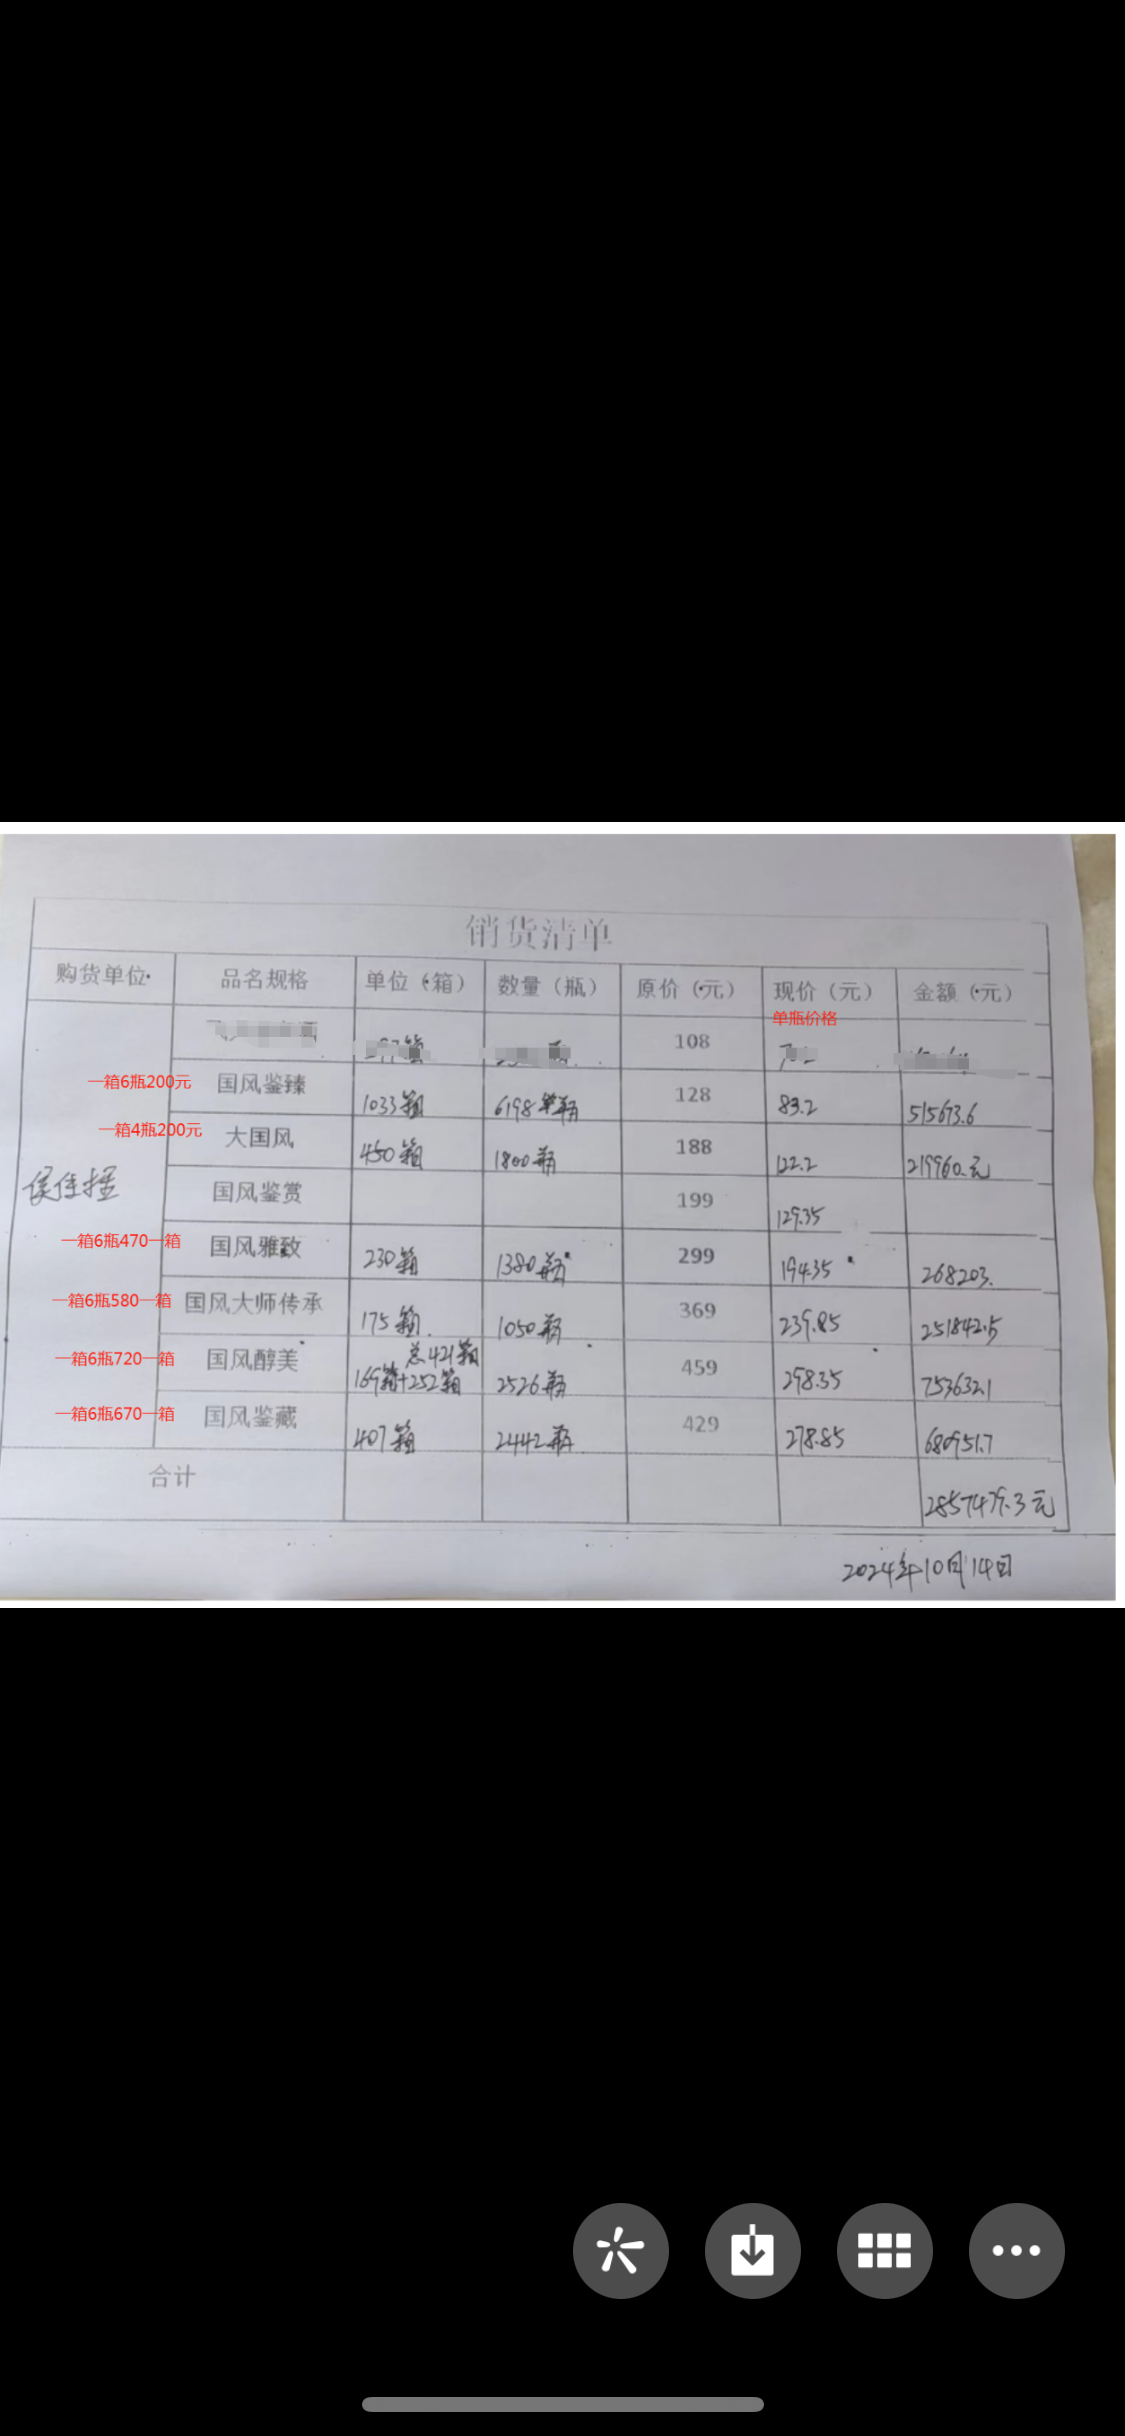 销货清单
购货单位 品名规格 单位（箱） 数量（瓶） 原价（元） 现价（元） 金额（元）
单瓶价格
108
一箱6瓶200元 国风鉴臻 1033箱 6198瓶 128 83.2 515673.6
一箱4瓶200元 大国风 450箱 1800瓶 188 122.2 219960.元
国风鉴赏 199 129.35
一箱6瓶470一箱 国风雅致 230箱 1380瓶 299 194.35 268203.
一箱6瓶580一箱 国风大师传承 175箱 1050瓶 369 239.85 251842.5
总421箱
一箱6瓶720一箱 国风醇美 169箱+252箱 2526瓶 459 298.35 753632.1
一箱6瓶670一箱 国风鉴藏 407箱 2442瓶 429 278.85 680951.7
合计 2857479.3元
2024年10月14日